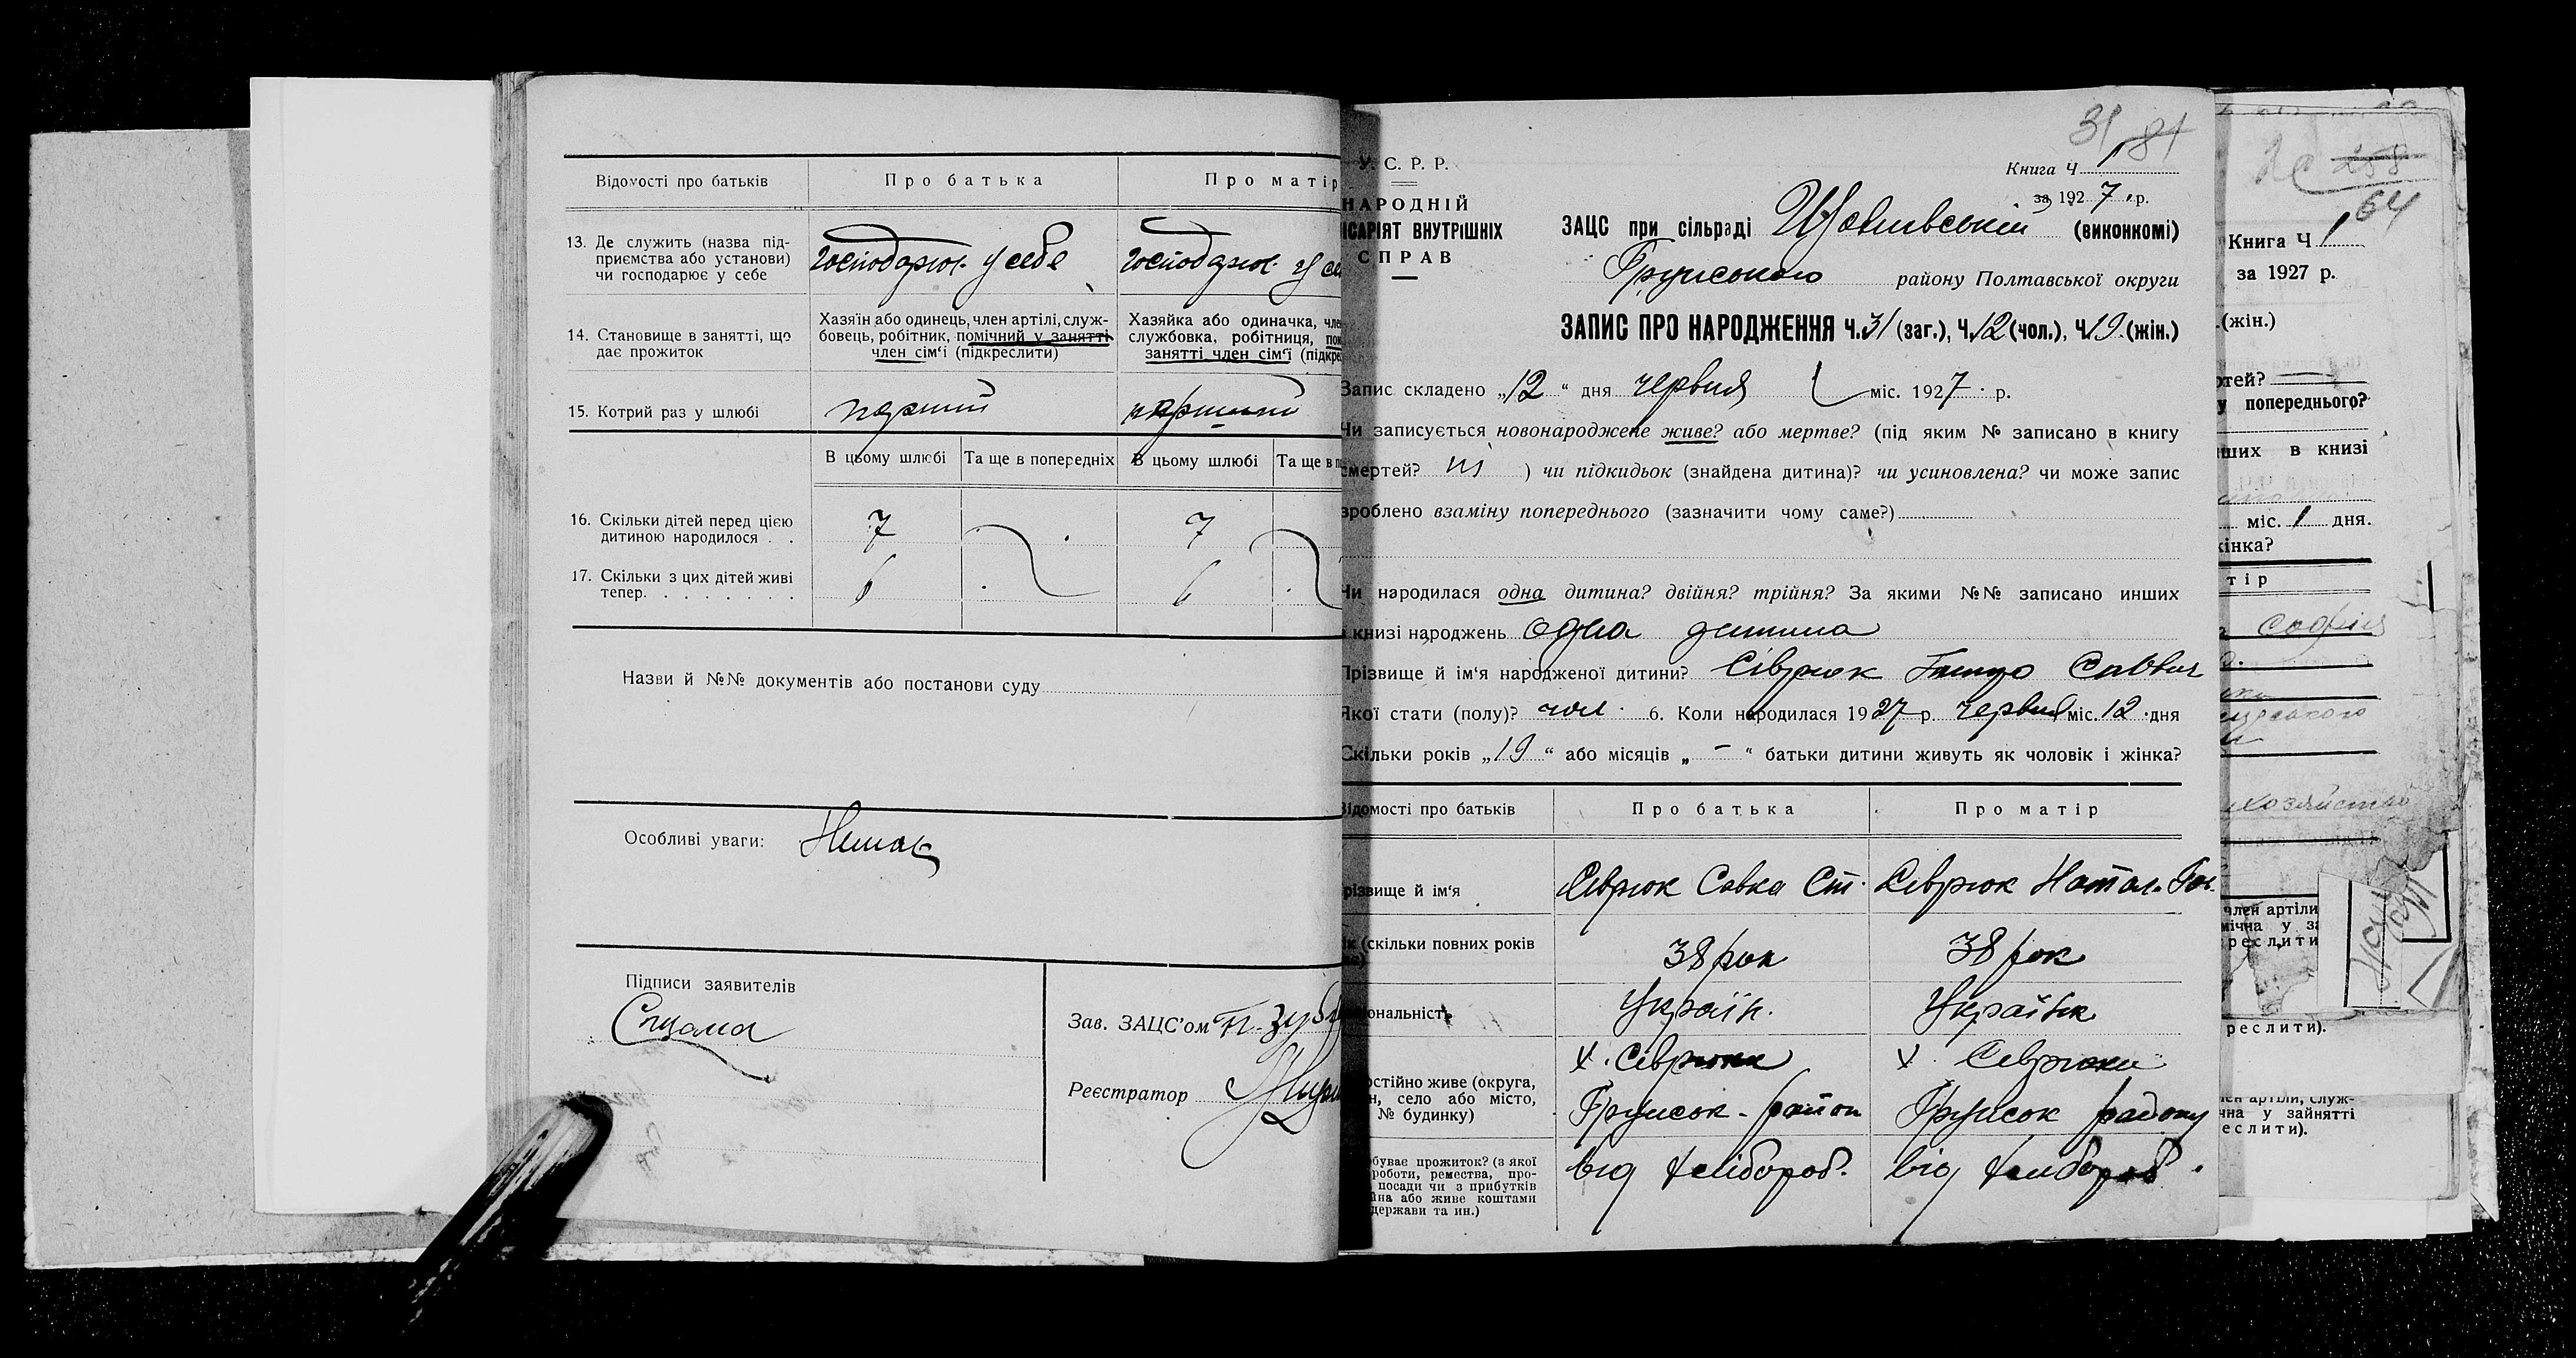 Відомості про батьків
Про батька
Про матір
13. Де служить (назва під-
приємства або установи)
чи господарює у себе
господарює у себе
господарює у се
14. Становище в занятті, що
дає прожиток
Хазяїн або одинець, член артілі, служ-
бовець, робітник, помічний у занятті
член сім'ї (підкреслити)
Хазяйка або одиначка, чле
службовка, робітниця, пом
занятті член сім'ї (підкре
15. Котрий раз у шлюбі
перший
перший
В цьому шлюбі
Та ще в попередніх
В цьому шлюбі
Та ще в п
16. Скільки дітей перед цією
дитиною народилося . .
7
7
17. Скільки з цих дітей живі
тепер. . . . . . . .
6
6
Назви й №№ документів або постанови суду
Особливі уваги: Немає
Підписи заявителів
Зав. ЗАЦС'ом
Реєстратор
31 81
У. С. Р. Р.
НАРОДНІЙ
ІСАРІЯТ ВНУТРІШНІХ
СПРАВ
Книга Ч 1
за 1927 р.
ЗАЦС при сільраді (виконкомі)
Грунського району Полтавської округи
ЗАПИС ПРО НАРОДЖЕННЯ Ч.31 (заг.), Ч.12 (чол.), Ч.19 (жін.)
Запис складено „12“ дня червня міс. 1927 р.
Чи записується новонароджене живе? або мертве? (під яким № записано в книгу
смертей? ні ) чи підкидьок (знайдена дитина)? чи усиновлена? чи може запис
зроблено взаміну попереднього (зазначити чому саме?)
Чи народилася одна дитина? двійня? трійня? За якими №№ записано инших
книзі народжень одна дитина
Прізвище й ім'я народженої дитини? Сіврюк
Якої стати (полу)? чол. 6. Коли народилася 1927 р. червня міс. 12 дня
Скільки років „19“ або місяців „-“ батьки дитини живуть як чоловік і жінка?
Відомості про батьків
Про батька
Про матір
різвище й ім'я
Сіврюк Савка Ст.
Сіврюк Натал.
ік (скільки повних років
38 рок
38 рок
ональність
Україн.
Українк
остійно живе (округа,
н, село або місто,
№ будинку)
х. Сіврюки
Грунськ. район
х. Сіврюки
Грунськ району
обуває прожиток? (з якої
роботи, ремества, про-
посади чи з прибутків
йна або живе коштами
держави та ин.)
від хлібороб.
від хлібороб.
64
Книга Ч 1
за 1927 р.
(жін.)
ртей?
у попереднього?
нших в книзі
міс. 1 дня.
жінка?
тір
Софія
хозяйство
член артіли
мічна у за
реслити
реслити).
лен артіли, служ-
чна у зайнятті
еслити).